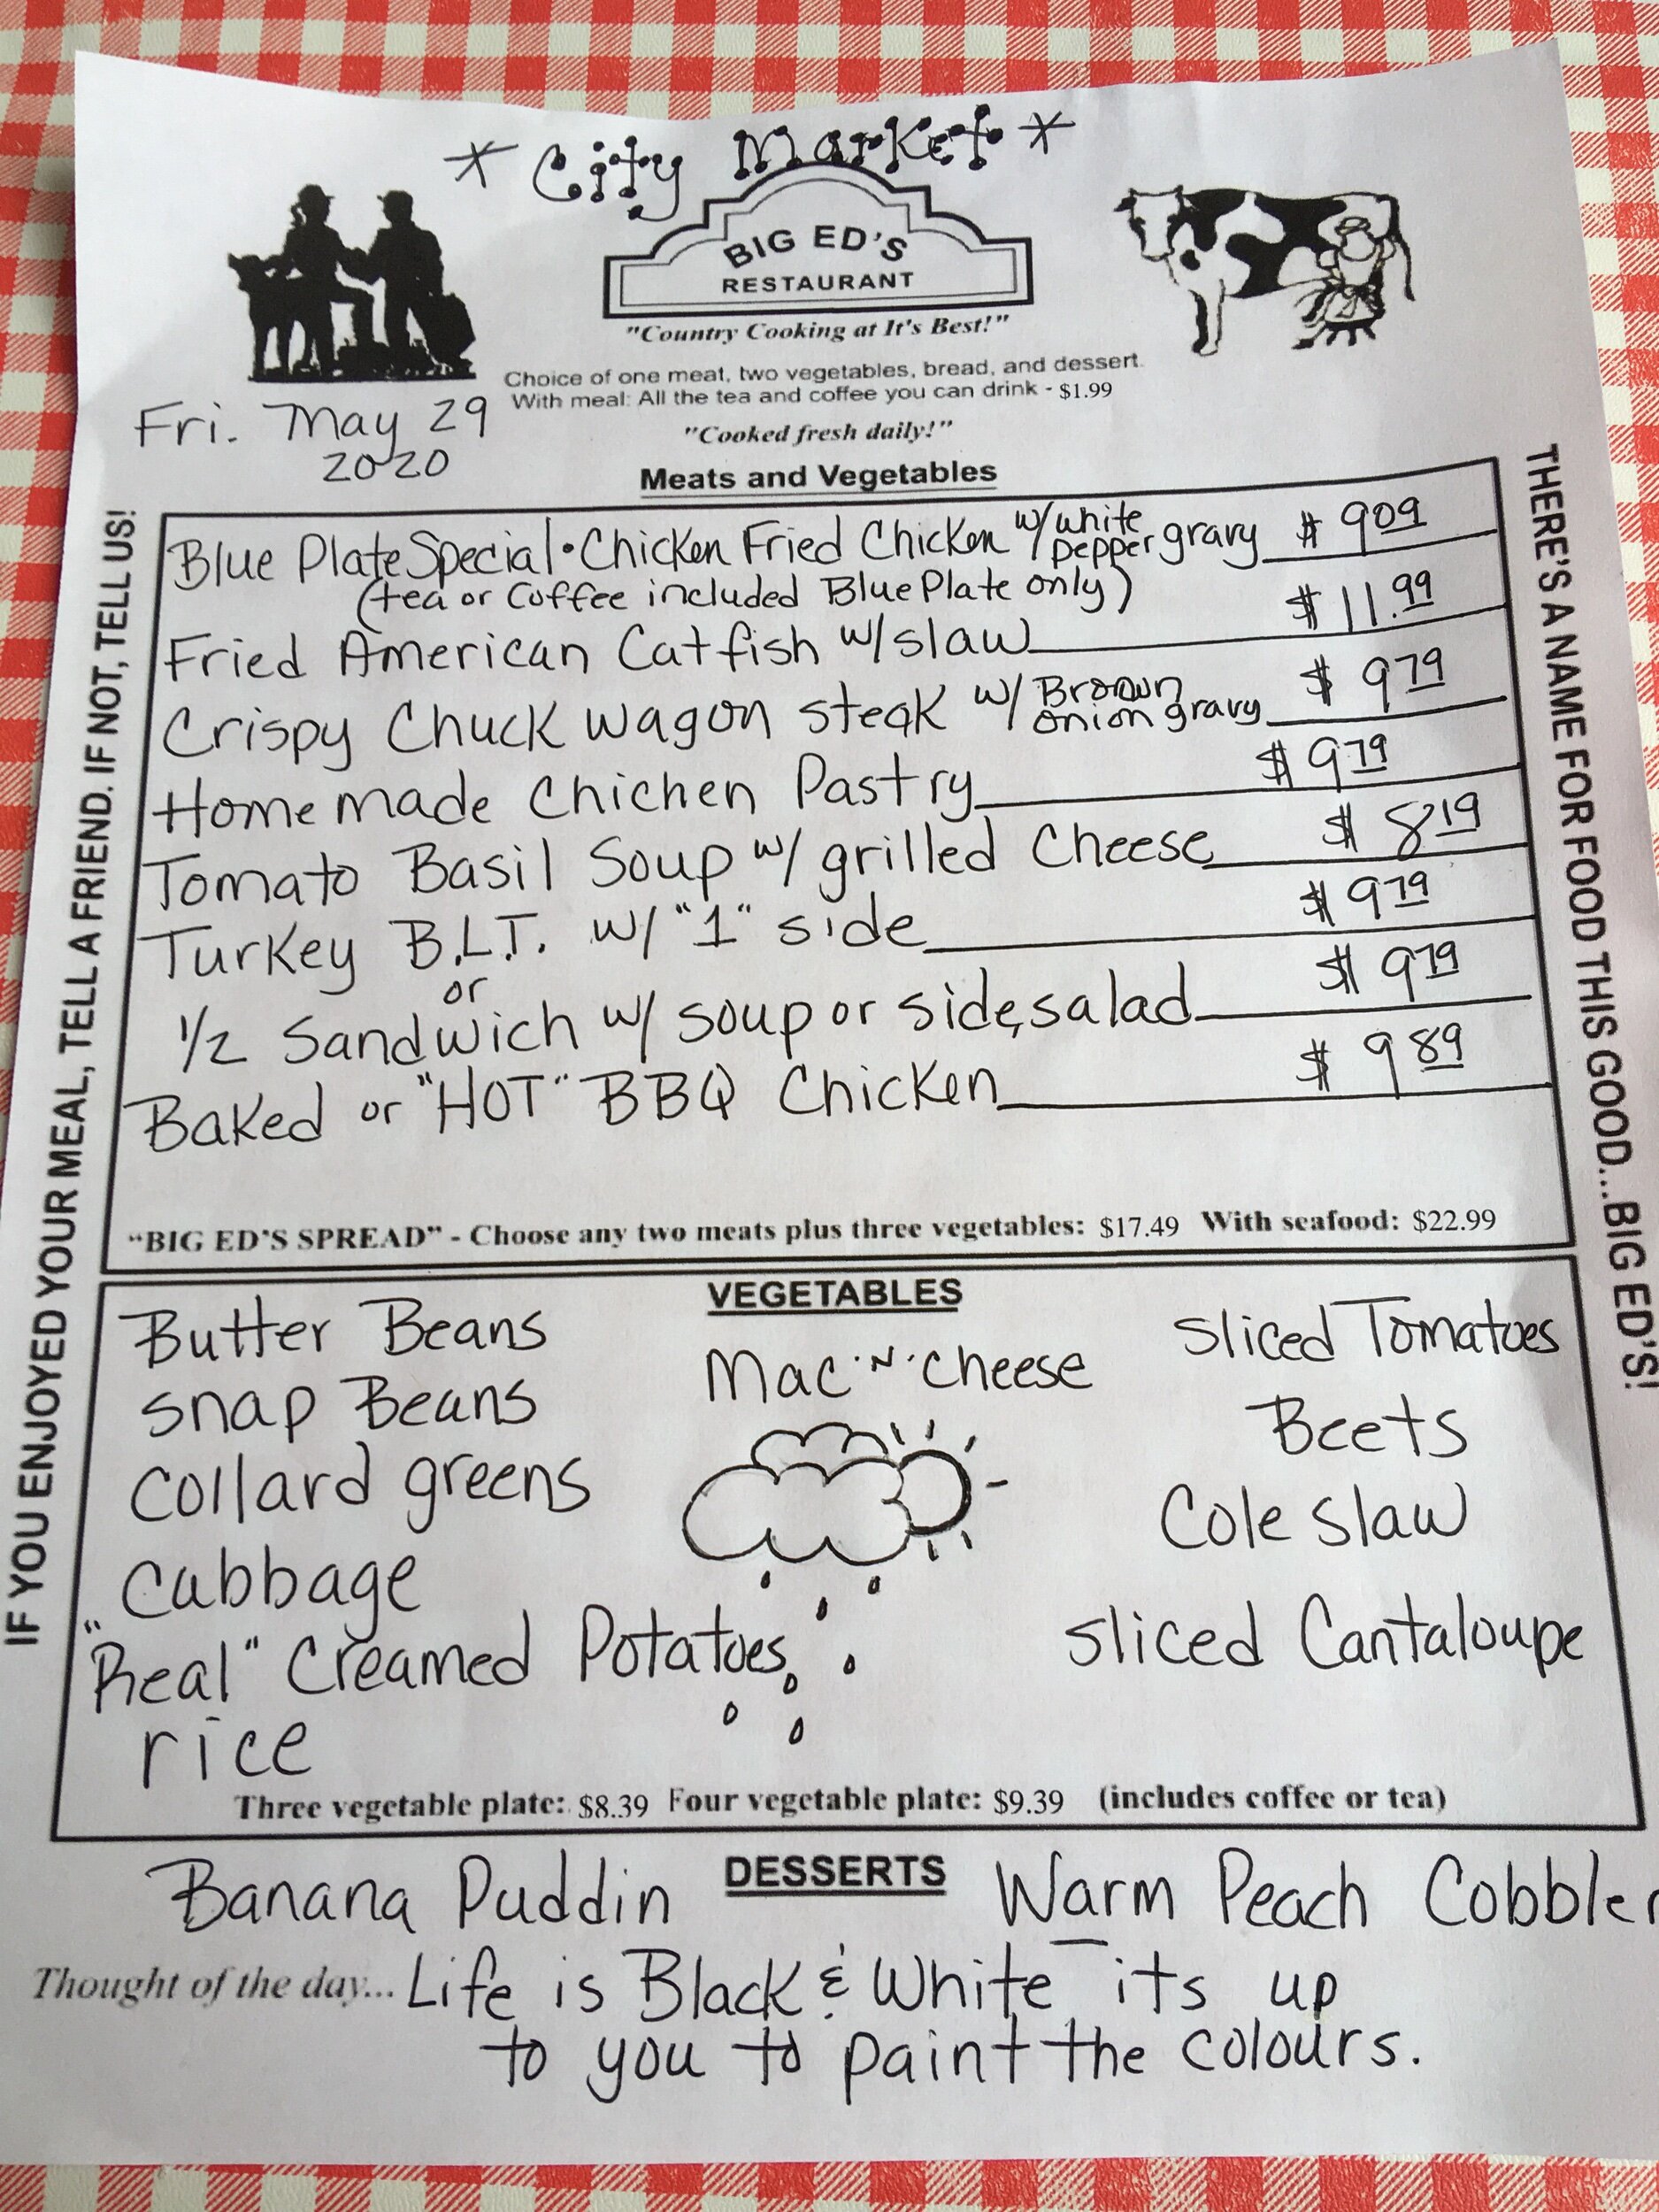 * City Market *
BIG ED'S
RESTAURANT
"Country Cooking at It's Best!"
Choice of one meat, two vegetables, bread, and dessert.
With meal: All the tea and coffee you can drink - $1.99
"Cooked fresh daily!"
Fri. May 29
2020
Meats and Vegetables
Blue Plate Special • Chicken Fried Chicken w/ white pepper gravy $ 9 09
(tea or Coffee included Blue Plate only)
Fried American Catfish w/ slaw $ 11.99
Crispy Chuck wagon steak w/ Brown onion gravy $ 9 79
Homemade Chichen Pastry $ 9 79
Tomato Basil Soup w/ grilled Cheese $ 8 19
Turkey B.L.T. w/ "1" side $ 9 79
or
1/2 Sandwich w/ soup or side, salad $ 9 79
Baked or "HOT" BBQ Chicken $ 9 89
"BIG ED'S SPREAD" - Choose any two meats plus three vegetables: $17.49 With seafood: $22.99
VEGETABLES
Butter Beans
snap Beans
collard greens
cabbage
"Real" Creamed Potatoes
rice
Mac 'N' Cheese
Sliced Tomatoes
Beets
Cole slaw
sliced Cantaloupe
Three vegetable plate: $8.39 Four vegetable plate: $9.39 (includes coffee or tea)
DESSERTS
Banana Puddin
Warm Peach Cobbler
Thought of the day... Life is Black & White its up
to you to paint the colours.
IF YOU ENJOYED YOUR MEAL, TELL A FRIEND. IF NOT, TELL US!
THERE'S A NAME FOR FOOD THIS GOOD...BIG ED'S!